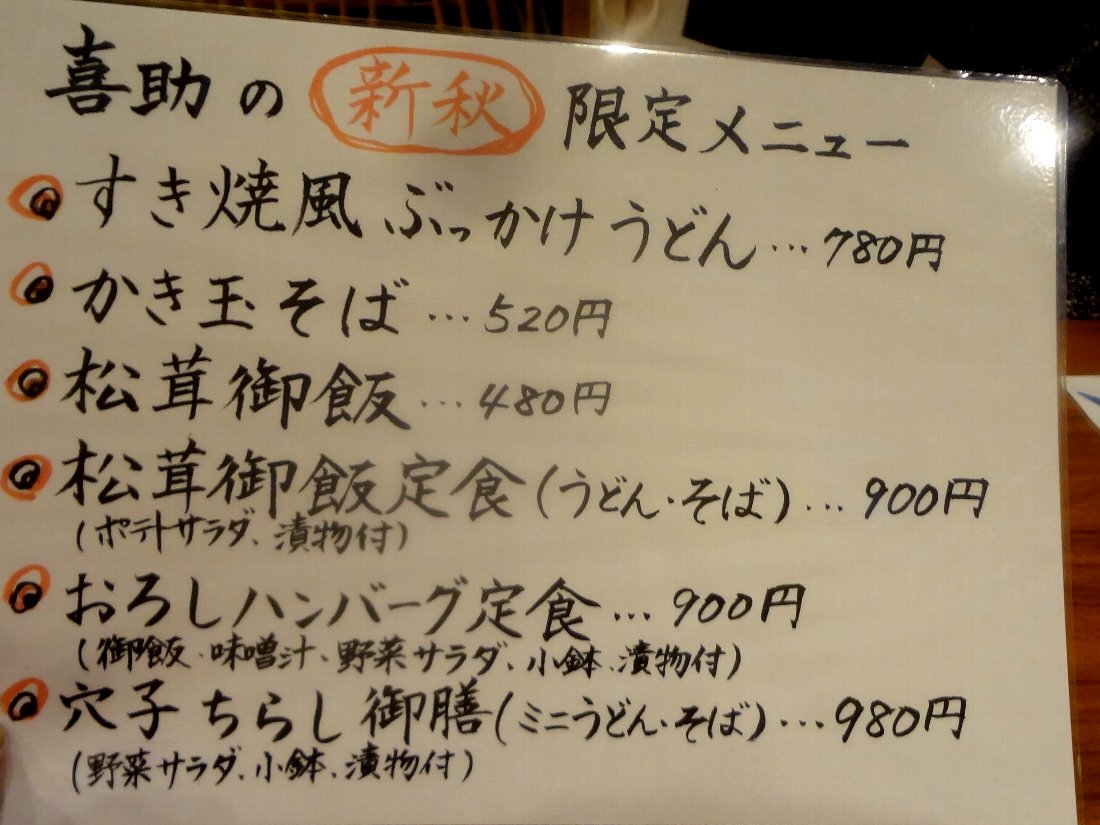 喜助の 新秋 限定メニュー
すき焼風 ぶっかけうどん…780円
かき玉そば…520円
松茸御飯…480円
松茸御飯定食(うどん・そば)…900円
(ポテトサラダ、漬物付)
おろしハンバーグ定食…900円
(御飯、味噌汁、野菜サラダ、小鉢、漬物付)
穴子ちらし御膳(ミニうどん・そば)…980円
(野菜サラダ、小鉢、漬物付)